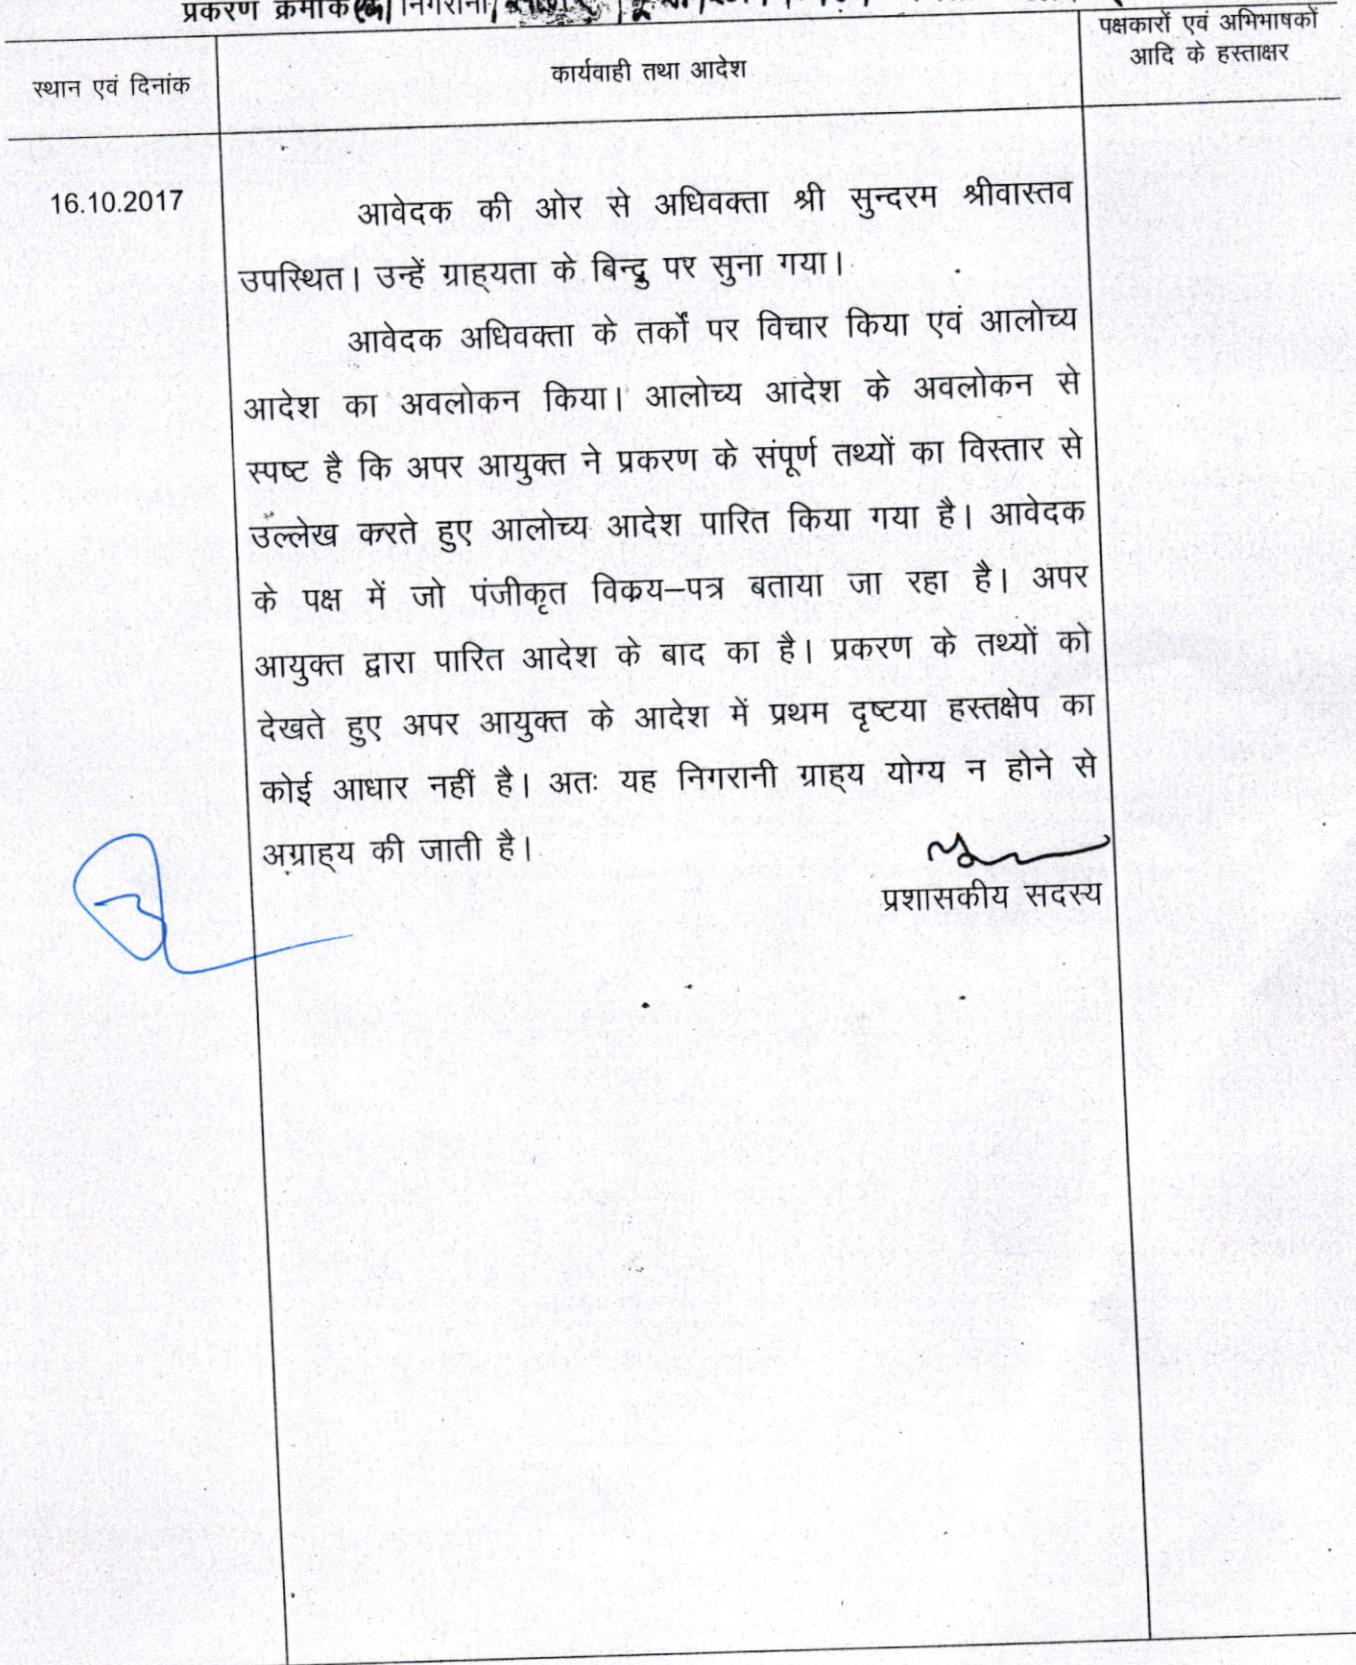 प्रकरण क्रमांक निगरानी
स्थान एवं दिनांक
कार्यवाही तथा आदेश
पक्षकारों एवं अभिभाषकों
आदि के हस्ताक्षर
16.10.2017
आवेदक की ओर से अधिवक्ता श्री सुन्दरम श्रीवास्तव
उपस्थित। उन्हें ग्राह्यता के बिन्दु पर सुना गया।
आवेदक अधिवक्ता के तर्कों पर विचार किया एवं आलोच्य
आदेश का अवलोकन किया। आलोच्य आदेश के अवलोकन से
स्पष्ट है कि अपर आयुक्त ने प्रकरण के संपूर्ण तथ्यों का विस्तार से
उल्लेख करते हुए आलोच्य आदेश पारित किया गया है। आवेदक
के पक्ष में जो पंजीकृत विक्रय–पत्र बताया जा रहा है। अपर
आयुक्त द्वारा पारित आदेश के बाद का है। प्रकरण के तथ्यों को
देखते हुए अपर आयुक्त के आदेश में प्रथम दृष्टया हस्तक्षेप का
कोई आधार नहीं है। अतः यह निगरानी ग्राह्य योग्य न होने से
अग्राह्य की जाती है।
प्रशासकीय सदस्य